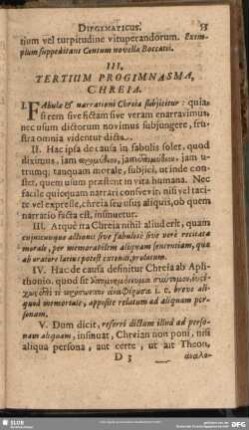 DIPGYMATICUS. 53
tium vel turpitudine vituperandorum. Exem-
plum suppeditant Centum novella Boccatii.
III.
TERTIUM PROGIMNASMA,
CHREIA.
I. Fabula & narrationi Chreia subjicitur: quia
si rem sive fictam sive veram enarravimus,
nec usum dictorum novimus subjungere, fru-
stra omnia videntur dicta.
II. Hac ipsa de causa in fabulis solet, quod
diximus, jam jam
trumq; tanquam morale, subjici, ut inde con-
stet, quem usum præstitur in vita humana. Nec
facile quicquam narrari consuevit, nisi vel taci-
te vel expresse, chreia seu usus aliquis, ob quem
narratio facta est, insinuetur.
III. Atque ita Chreia nihil aliud erit, quam
cujuscunque actionis sive fabulose sive vere recitata
morale, per memorabilem aliquam sententiam, qua
ab oratore latius potest extendi, prolatum.
IV. Hac de causa definitur Chreia ab Aph-
thonio, quod sit
i. e. breve ali-
quod memoriale, apposite relatum ad aliquam per-
sonam.
V. Dum dicit, referri dictum illud ad perso-
nam aliquam, insinuat, Chreian non poni, nisi
aliqua persona, aut certe, ut ait Theon,
D 3 analo-
SLUB
DFG